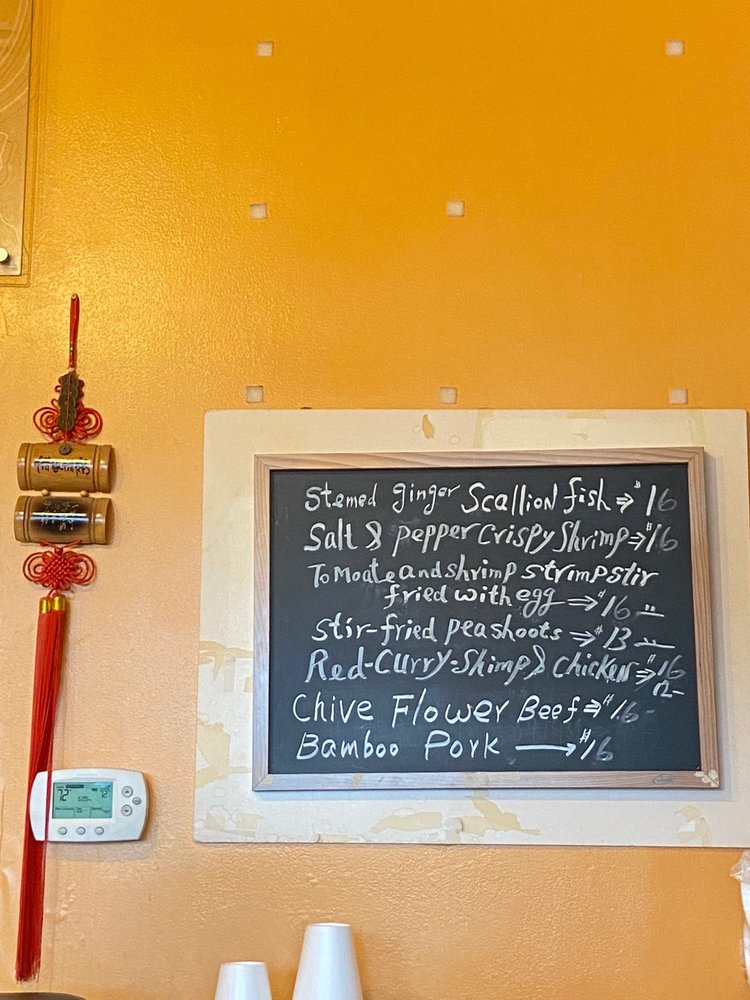 Stemed ginger Scallion fish ⇒ $16
Salt & pepper Crispy Shrimp ⇒ $16
ToMoate and shrimp strimp stir
fried with egg ⇒ $16
stir-fried peashoots ⇒ $13
Red-Curry-Shimp & Chicken ⇒ $16
12-
Chive Flower Beef ⇒ $16-
Bamboo Pork → $16
72°
72°